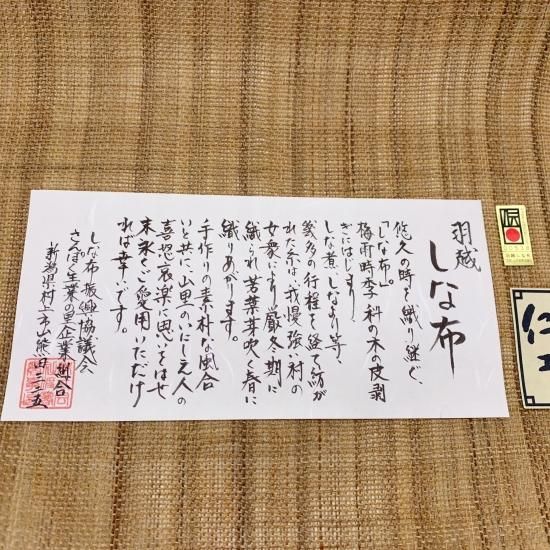 羽越
しな布
悠久の時を織り継ぐ、
「しな布」。
梅雨時季科の木の皮剥
ぎにはじまり
しな煮、しなより等、
幾多の行程を経て紡が
れた糸は、我慢強い村の
女衆により厳冬期に
織られ、若葉芽吹く春に
織りあがります。
手作りの素朴な風合
いと共に、山里のいにしえ人の
喜怒哀楽に思いをはせ
末永くご愛用いただけ
れば幸いです。
しな布振興協議会
さんぽく生業の里企業組合
新潟県村上市山熊田三二五
伝